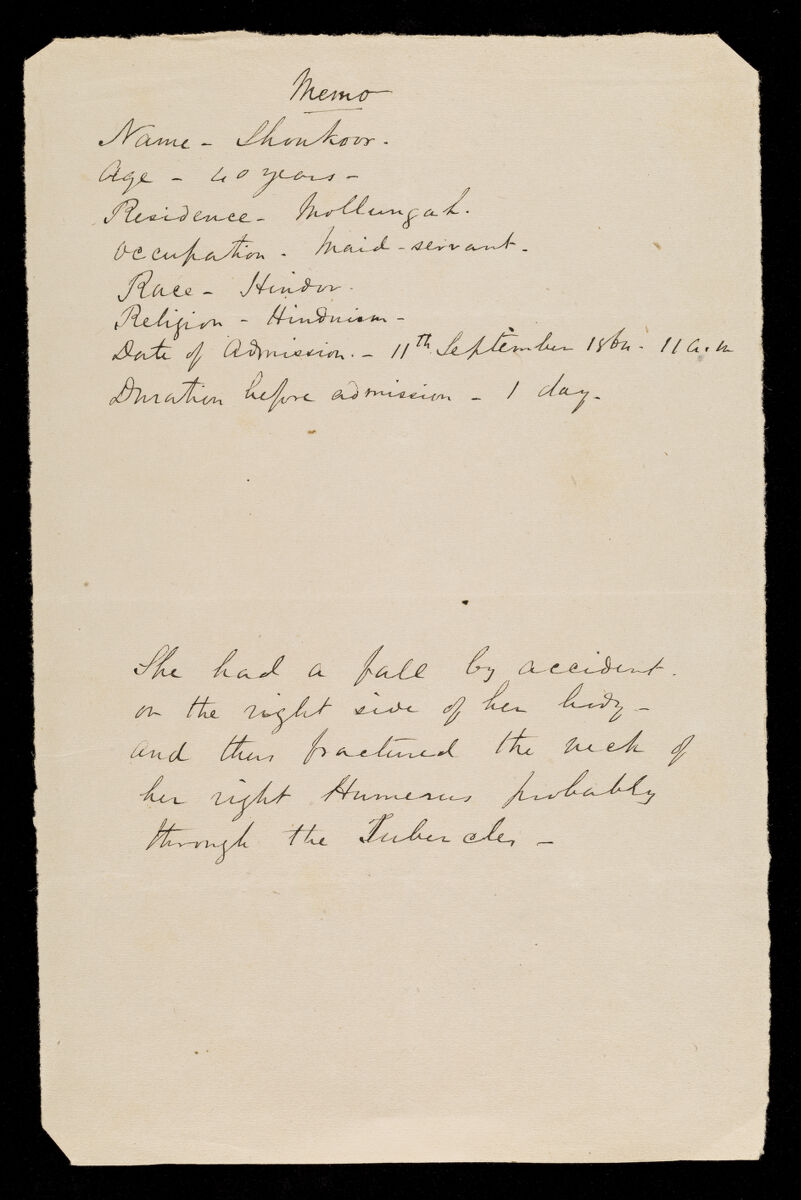 Memo
Name - Shoukoor.
Age - 40 years -
Residence - Mollungah.
Occupation - Maid-servant.
Race - Hindoo.
Religion - Hinduism -
Date of Admission. - 11th September - 11 a.m
Duration before admission - 1 day.
She had a fall by accident.
on the right side of her body -
and thus fractured the neck of
her right Humerus probably
through the Tubercles -